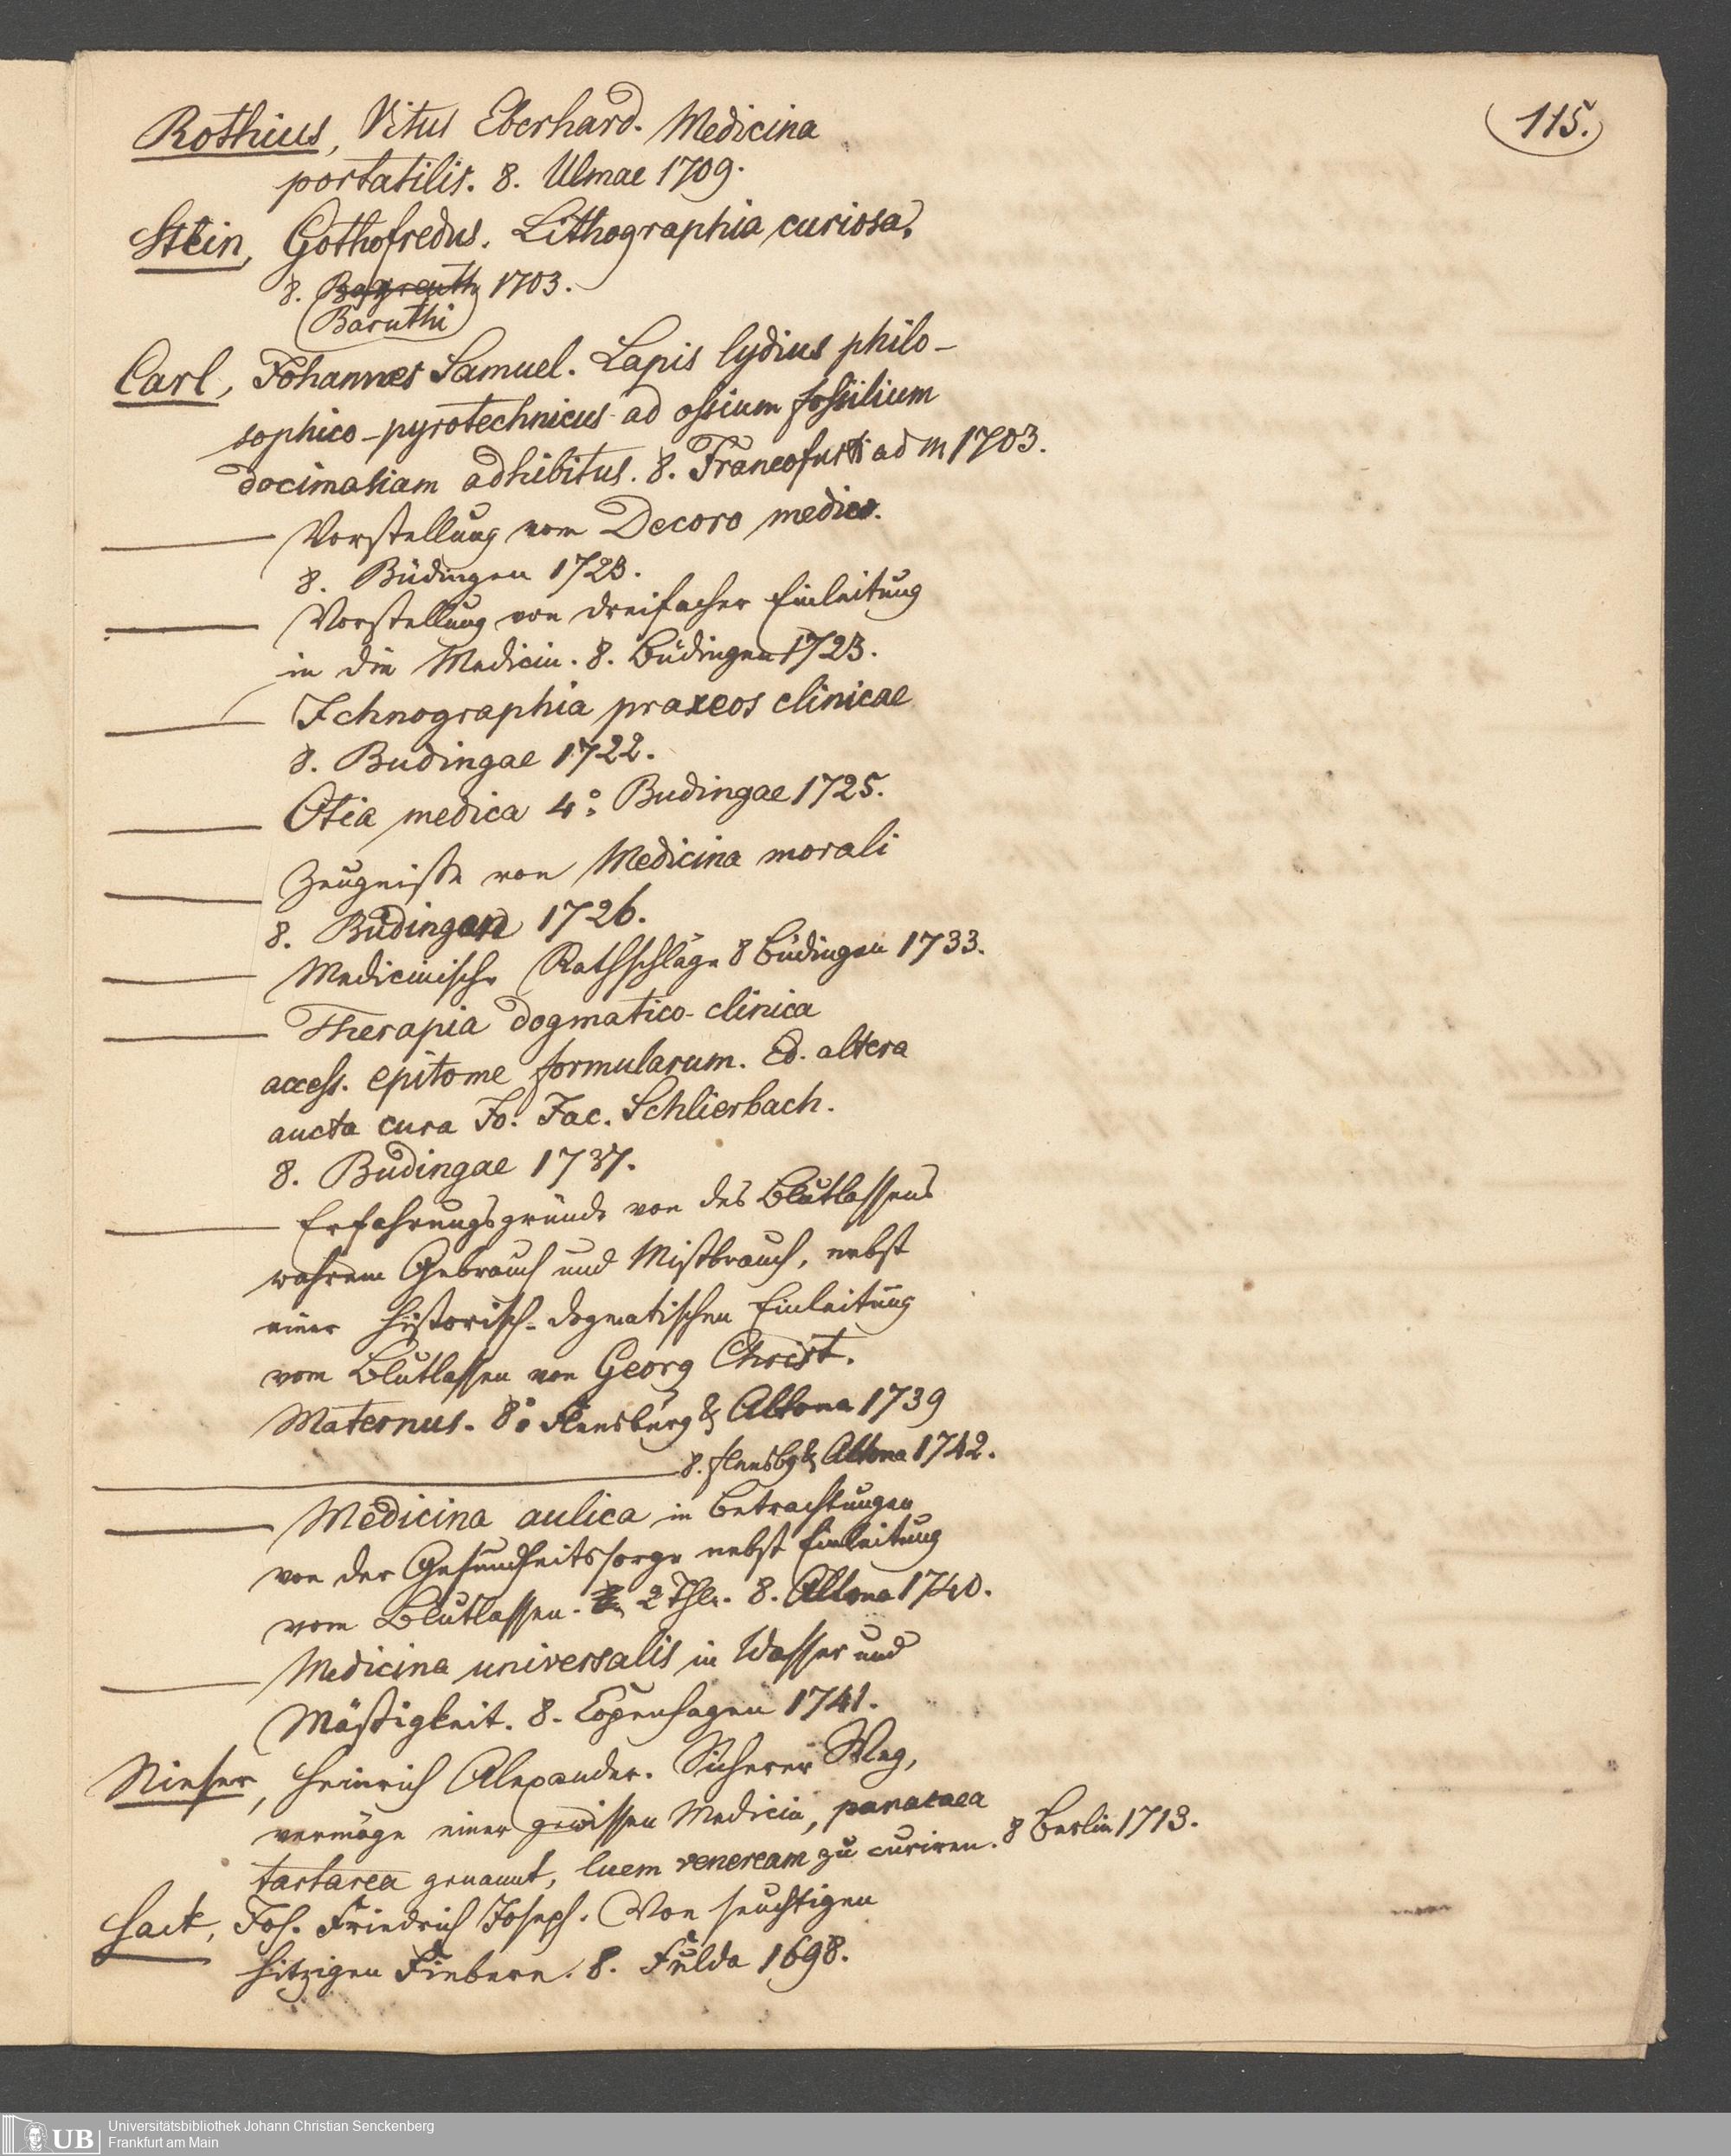 115.
Rothius, Vitus Eberhard. Medicina
portatilis. 8. Ulmae 1709.
Stein, Gothofredus. Lithographia curiosa.
8. Bayreuth 1703.
(Baruthi)
Carl, Johannes Samuel. Lapis lydius philo-
sophico-pyrotechnicus ad ossium fossilium
docimasiam adhibitus. 8. Francofurti ad M 1703.
—— Vorstellung vom Decoro medico.
8. Büdingen 1723.
—— Vorstellung von dreifacher Einleitung
in die Medicin. 8. Büdingen 1723.
—— Ichnographia praxeos clinicae
8. Budingae 1722.
—— Otia medica 4° Budingae 1725.
—— Zeugnisse von Medicina morali
8. Büdingen 1726.
—— Medicinische Rathschläge 8 Büdingen 1733.
—— Therapia dogmatico-clinica
access. epitome formularum. Ed. altera
aucta cura Jo. Jac. Schlierbach.
8. Budingae 1737.
—— Erfahrungsgründe von des Blutlassens
wahrem Gebrauch und Missbrauch, nebst
einer historisch-dogmatischen Einleitung
vom Blutlassen von Georg Christ.
Maternus. 8° Flensburg & Altona 1739
—— 8. Flensbg & Altona 1742.
—— Medicina aulica in Betrachtungen
von der Gesundheitssorge nebst Einleitung
vom Blutlassen. 2 Thle. 8. Altona 1740.
—— Medicina universalis in Wasser und
Mässigkeit. 8. Copenhagen 1741.
Nieser, Heinrich Alexander. Sicherer Weg,
vermöge einer gewissen Medicin, panacaea
tartarea genannt, luem veneream zu curiren. 8 Berlin 1713.
Hack, Joh. Friedrich Joseph. Von seuchtigen
hitzigen Fiebern. 8. Fulda 1698.
UB
Universitätsbibliothek Johann Christian Senckenberg
Frankfurt am Main